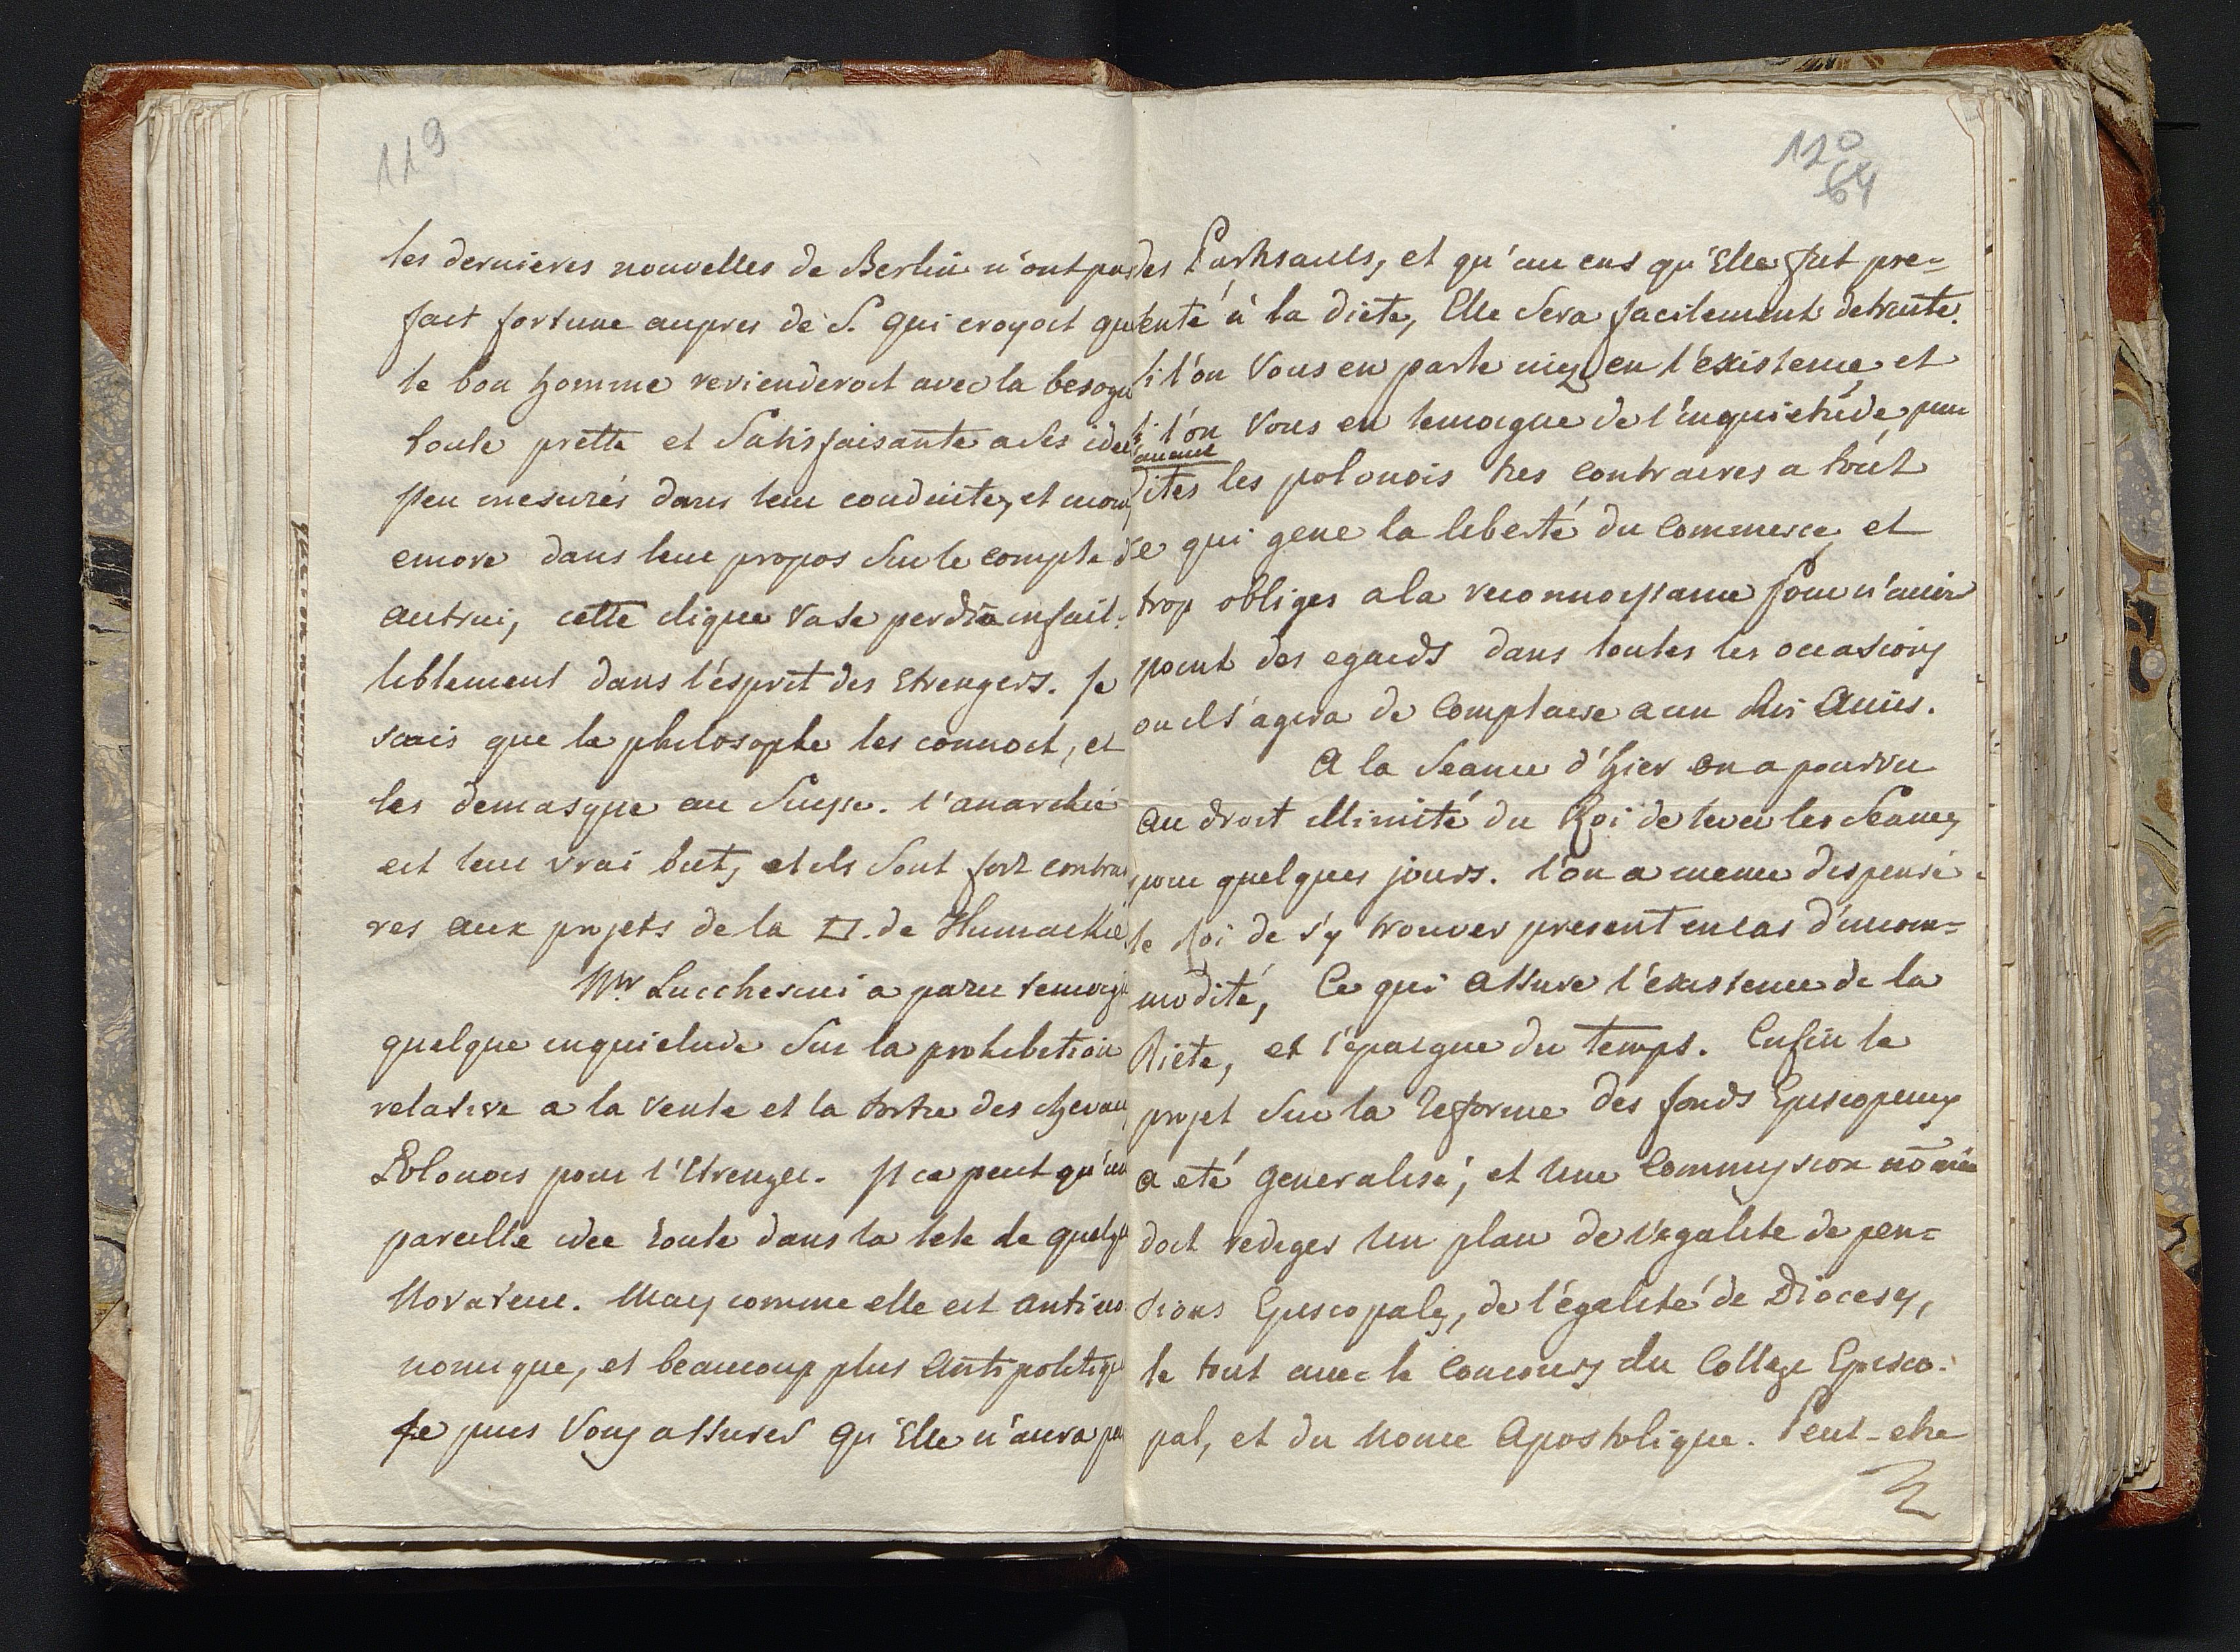 119
les dernieres nouvelles de Berlin n'ont pas
fait fortune aupres de S. qui croyoit que
le bon homme reviendroit avec la besogn
toute prette et Satisfaisante a Ses idee
Peu mesurés dans leur conduite, et moin
encore dans leur propos Sur le compte d'
autrui, cette clique va Se perdre infail-
liblement dans l'ésprit des Etrengers. Je
scais que le philosophe les connoit, et
les demasque au Suisse. l'anarchie
est leur vrai but, et ils Sont fort contrai
res aux projets de la
Mr. Lucchesini a paru temoign
quelque inquietude Sur la prohibition
relative a la vente et la Sortie des chevau
Polonois pour l'Etrenger. Il ce peut qu'un
pareille idee roule dans la tete de quelqu
Novateur. Mais comme elle est antieco
nomique, et beaucoup plus Antipolitiqu
je puis Vous assurer qu'Elle n'aura pas
120
64
des Partisants, et qu'au cas qu'Elle fut pre=
senté à la diète, Elle Sera facilement detruite.
Si l'on Vous en parle niez en l'existence, et
Si l'ón Vous en temoigne de l'inquietude,
avant
dites les polonois tres contraires a toút
ce qui gene la liberté du Commerce, et
trop obliges a la reconnoissance pour n'avoir
point des egards dans toutes les occasions
ou il s'agira de Complaire a un Roi Amis.
A la Seance d'hier on a pourvu
au droit illimité du Roi de lever les Seances
pour quelques jours. l'on a meme dispensé
le Roi de s'y trouver present en cas d'incom=
modité, Ce qui assure l'existence de la
Diète, et l'épargne du temps. Enfin le
projet Sur la Reforme des fonds Episcopeaux
a eté generalisé, et Une Commission nom̄ée
doit rediger Un plan de l'egalité de pen=
sions Episcopales, de l'égalité de Dioceses,
le tout avec le Concours du College Episco-
pal, et du Nonce Apostolique. Peut-etre